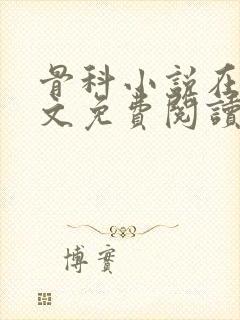 骨科小说在
文免費閱讀
博實